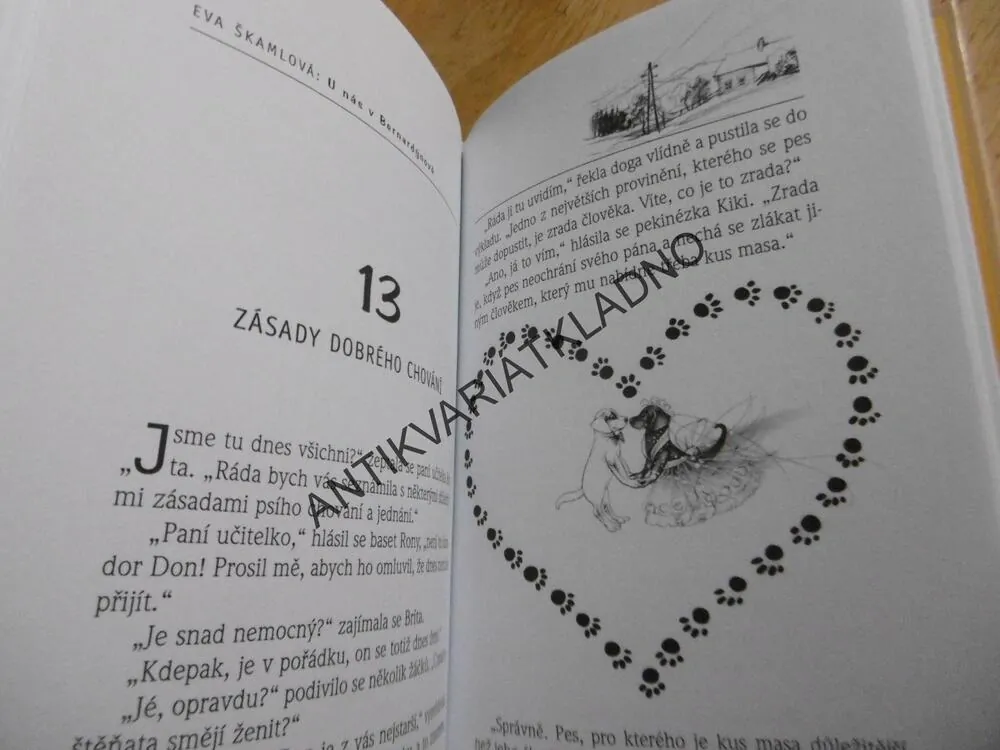 EVA ŠKAMLOVÁ: U nás v Bernardýnově
13
ZÁSADY DOBRÉHO CHOVÁNÍ
„Jsme tu dnes všichni?“ zeptala se paní
ta. „Ráda bych vás seznámila s některými
mi zásadami psího chování a jednání.“
„Paní učitelko,“ hlásil se baset Rony,
dor Don! Prosil mě, abych ho omluvil, že dnes
přijít.“
„Je snad nemocný?“ zajímala se Brita.
„Kdepak, je v pořádku, on se totiž dnes
„Jé, opravdu?“ podivilo se několik žáčků.
štěňata smějí ženit?“
je z vás nejstarší,“
„Ráda ji tu uvidím,“ řekla doga vlídně a pustila se do
výkladu. „Jedno z největších provinění, kterého se pes
může dopustit, je zrada člověka. Víte, co je to zrada?“
„Ano, já to vím,“ hlásila se pekinézka Kiki. „Zrada
je, když pes neochrání svého pána a nechá se zlákat ji-
ným člověkem, který mu nabídne třeba kus masa.“
„Správně. Pes, pro kterého je kus masa důležitější
než jeho
ANTIKVARIATKLADNO